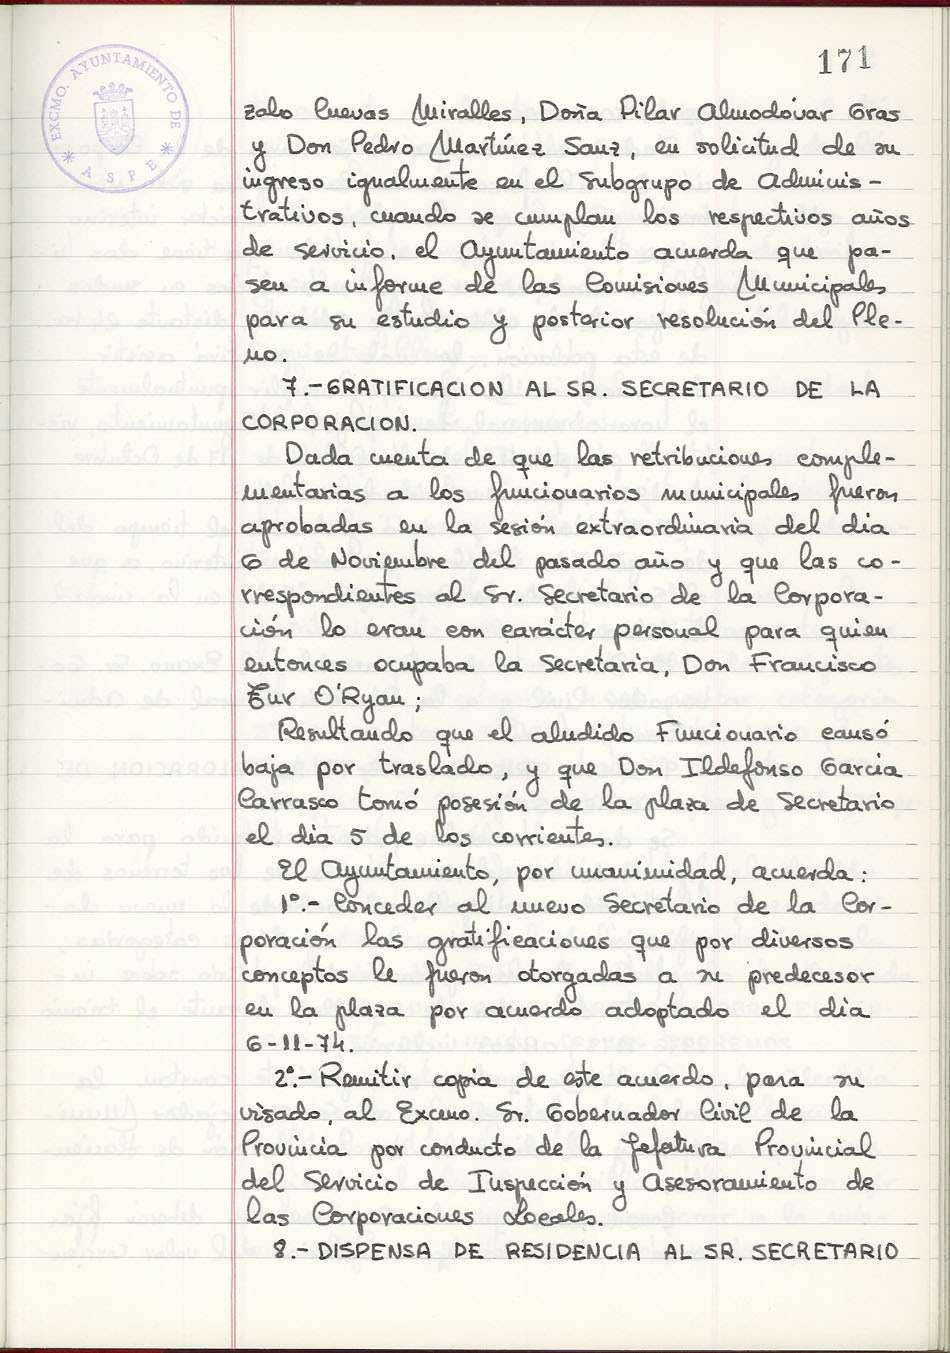 171
EXCMO. AYUNTAMIENTO DE
ASPE
zalo Cuevas Miralles, Doña Pilar Almodóvar Gras
y Don Pedro Martínez Sanz, en solicitud de su
ingreso igualmente en el Subgrupo de Adminis-
trativos, cuando se cumplan los respectivos años
de servicio, el Ayuntamiento acuerda que pa-
sen a informe de las Comisiones Municipales
para su estudio y posterior resolución del Ple-
no.
7.- GRATIFICACION AL SR. SECRETARIO DE LA
CORPORACION.
Dada cuenta de que las retribuciones comple-
mentarias a los funcionarios municipales fueron
aprobadas en la sesión extraordinaria del dia
6 de Noviembre del pasado año y que las co-
rrespondientes al Sr. Secretario de la Corpora-
ción lo eran con carácter personal para quien
entonces ocupaba la Secretaria, Don Francisco
O'Ryan;
Resultando que el aludido Funcionario causó
baja por traslado, y que Don Ildefonso Garcia
Carrasco tomó posesión de la plaza de Secretario
el dia 5 de los corrientes.
El Ayuntamiento, por unanimidad, acuerda:
1º.- Conceder al nuevo Secretario de la Cor-
poración las gratificaciones que por diversos
conceptos le fueron otorgadas a su predecesor
en la plaza por acuerdo adoptado el dia
6-11-74.
2º.- Remitir copia de este acuerdo, para su
visado, al Excmo. Sr. Gobernador Civil de la
Provincia por conducto de la Jefatura Provincial
del Servicio de Inspección y Asesoramiento de
las Corporaciones Locales.
8.- DISPENSA DE RESIDENCIA AL SR. SECRETARIO